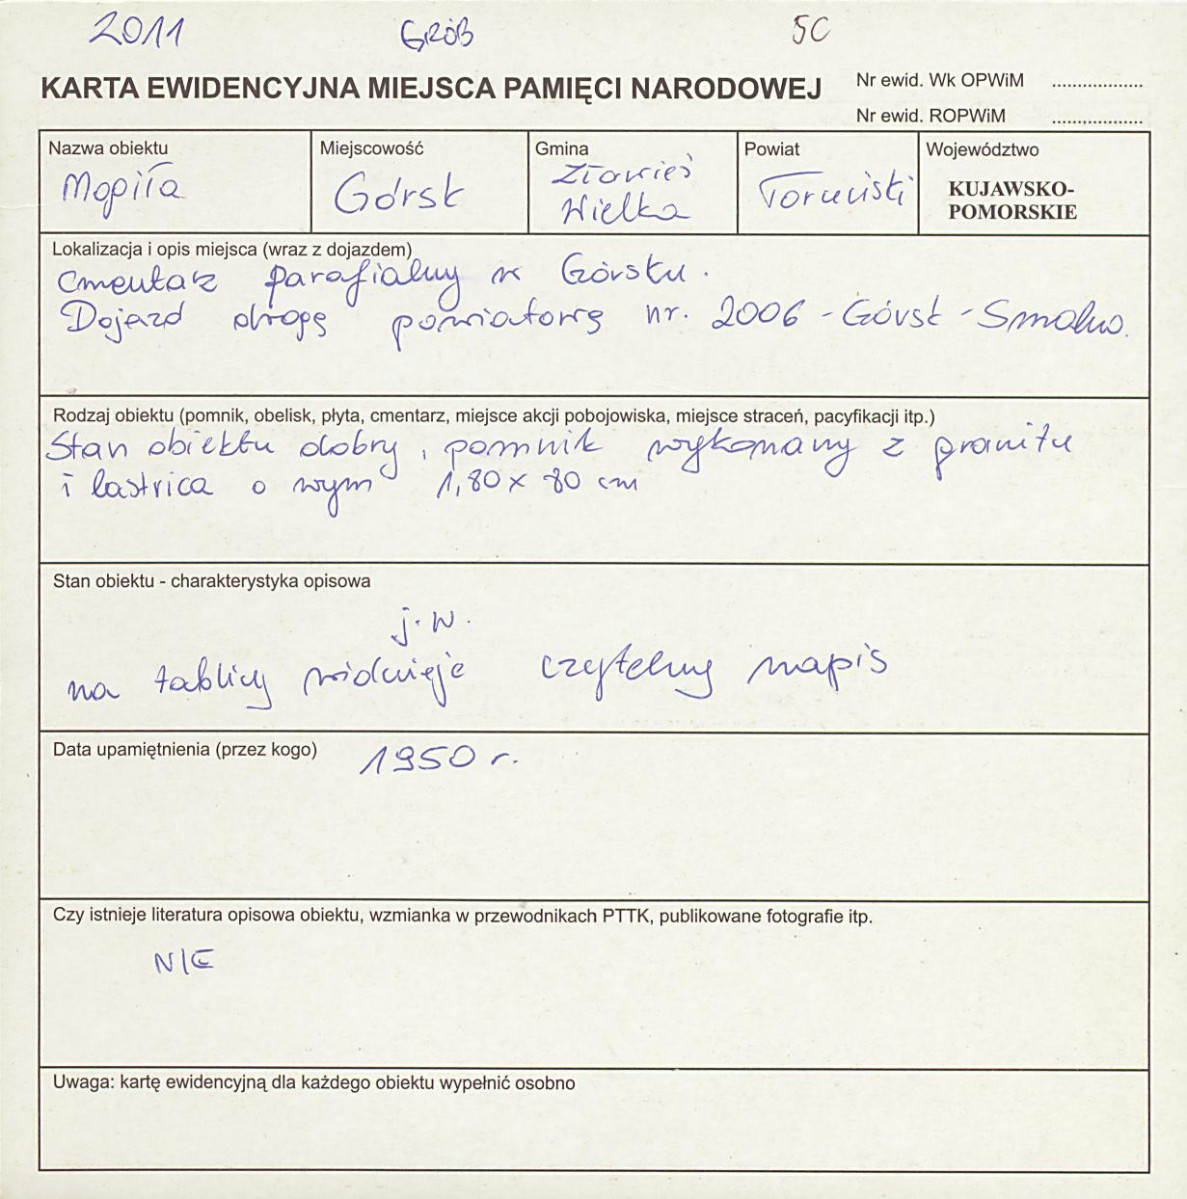 2011 GRÓB 5C
KARTA EWIDENCYJNA MIEJSCA PAMIĘCI NARODOWEJ
Nr ewid. Wk OPWiM ...................
Nr ewid. ROPWiM ...................
Nazwa obiektu
Mogiła
Miejscowość
Górsk
Gmina
Zławieś
Wielka
Powiat
Toruński
Województwo
KUJAWSKO-
POMORSKIE
Lokalizacja i opis miejsca (wraz z dojazdem)
Cmentarz parafialny w Górsku.
Dojazd drogą powiatową nr. 2006 - Górsk - Smolno.
Rodzaj obiektu (pomnik, obelisk, płyta, cmentarz, miejsce akcji pobojowiska, miejsce straceń, pacyfikacji itp.)
Stan obiektu dobry, pomnik wykonany z granitu
i lastrica o wym 1,80 x 80 cm
Stan obiektu - charakterystyka opisowa
j.w.
na tablicy widnieje czytelny napis
Data upamiętnienia (przez kogo) 1950 r.
Czy istnieje literatura opisowa obiektu, wzmianka w przewodnikach PTTK, publikowane fotografie itp.
NIE
Uwaga: kartę ewidencyjną dla każdego obiektu wypełnić osobno